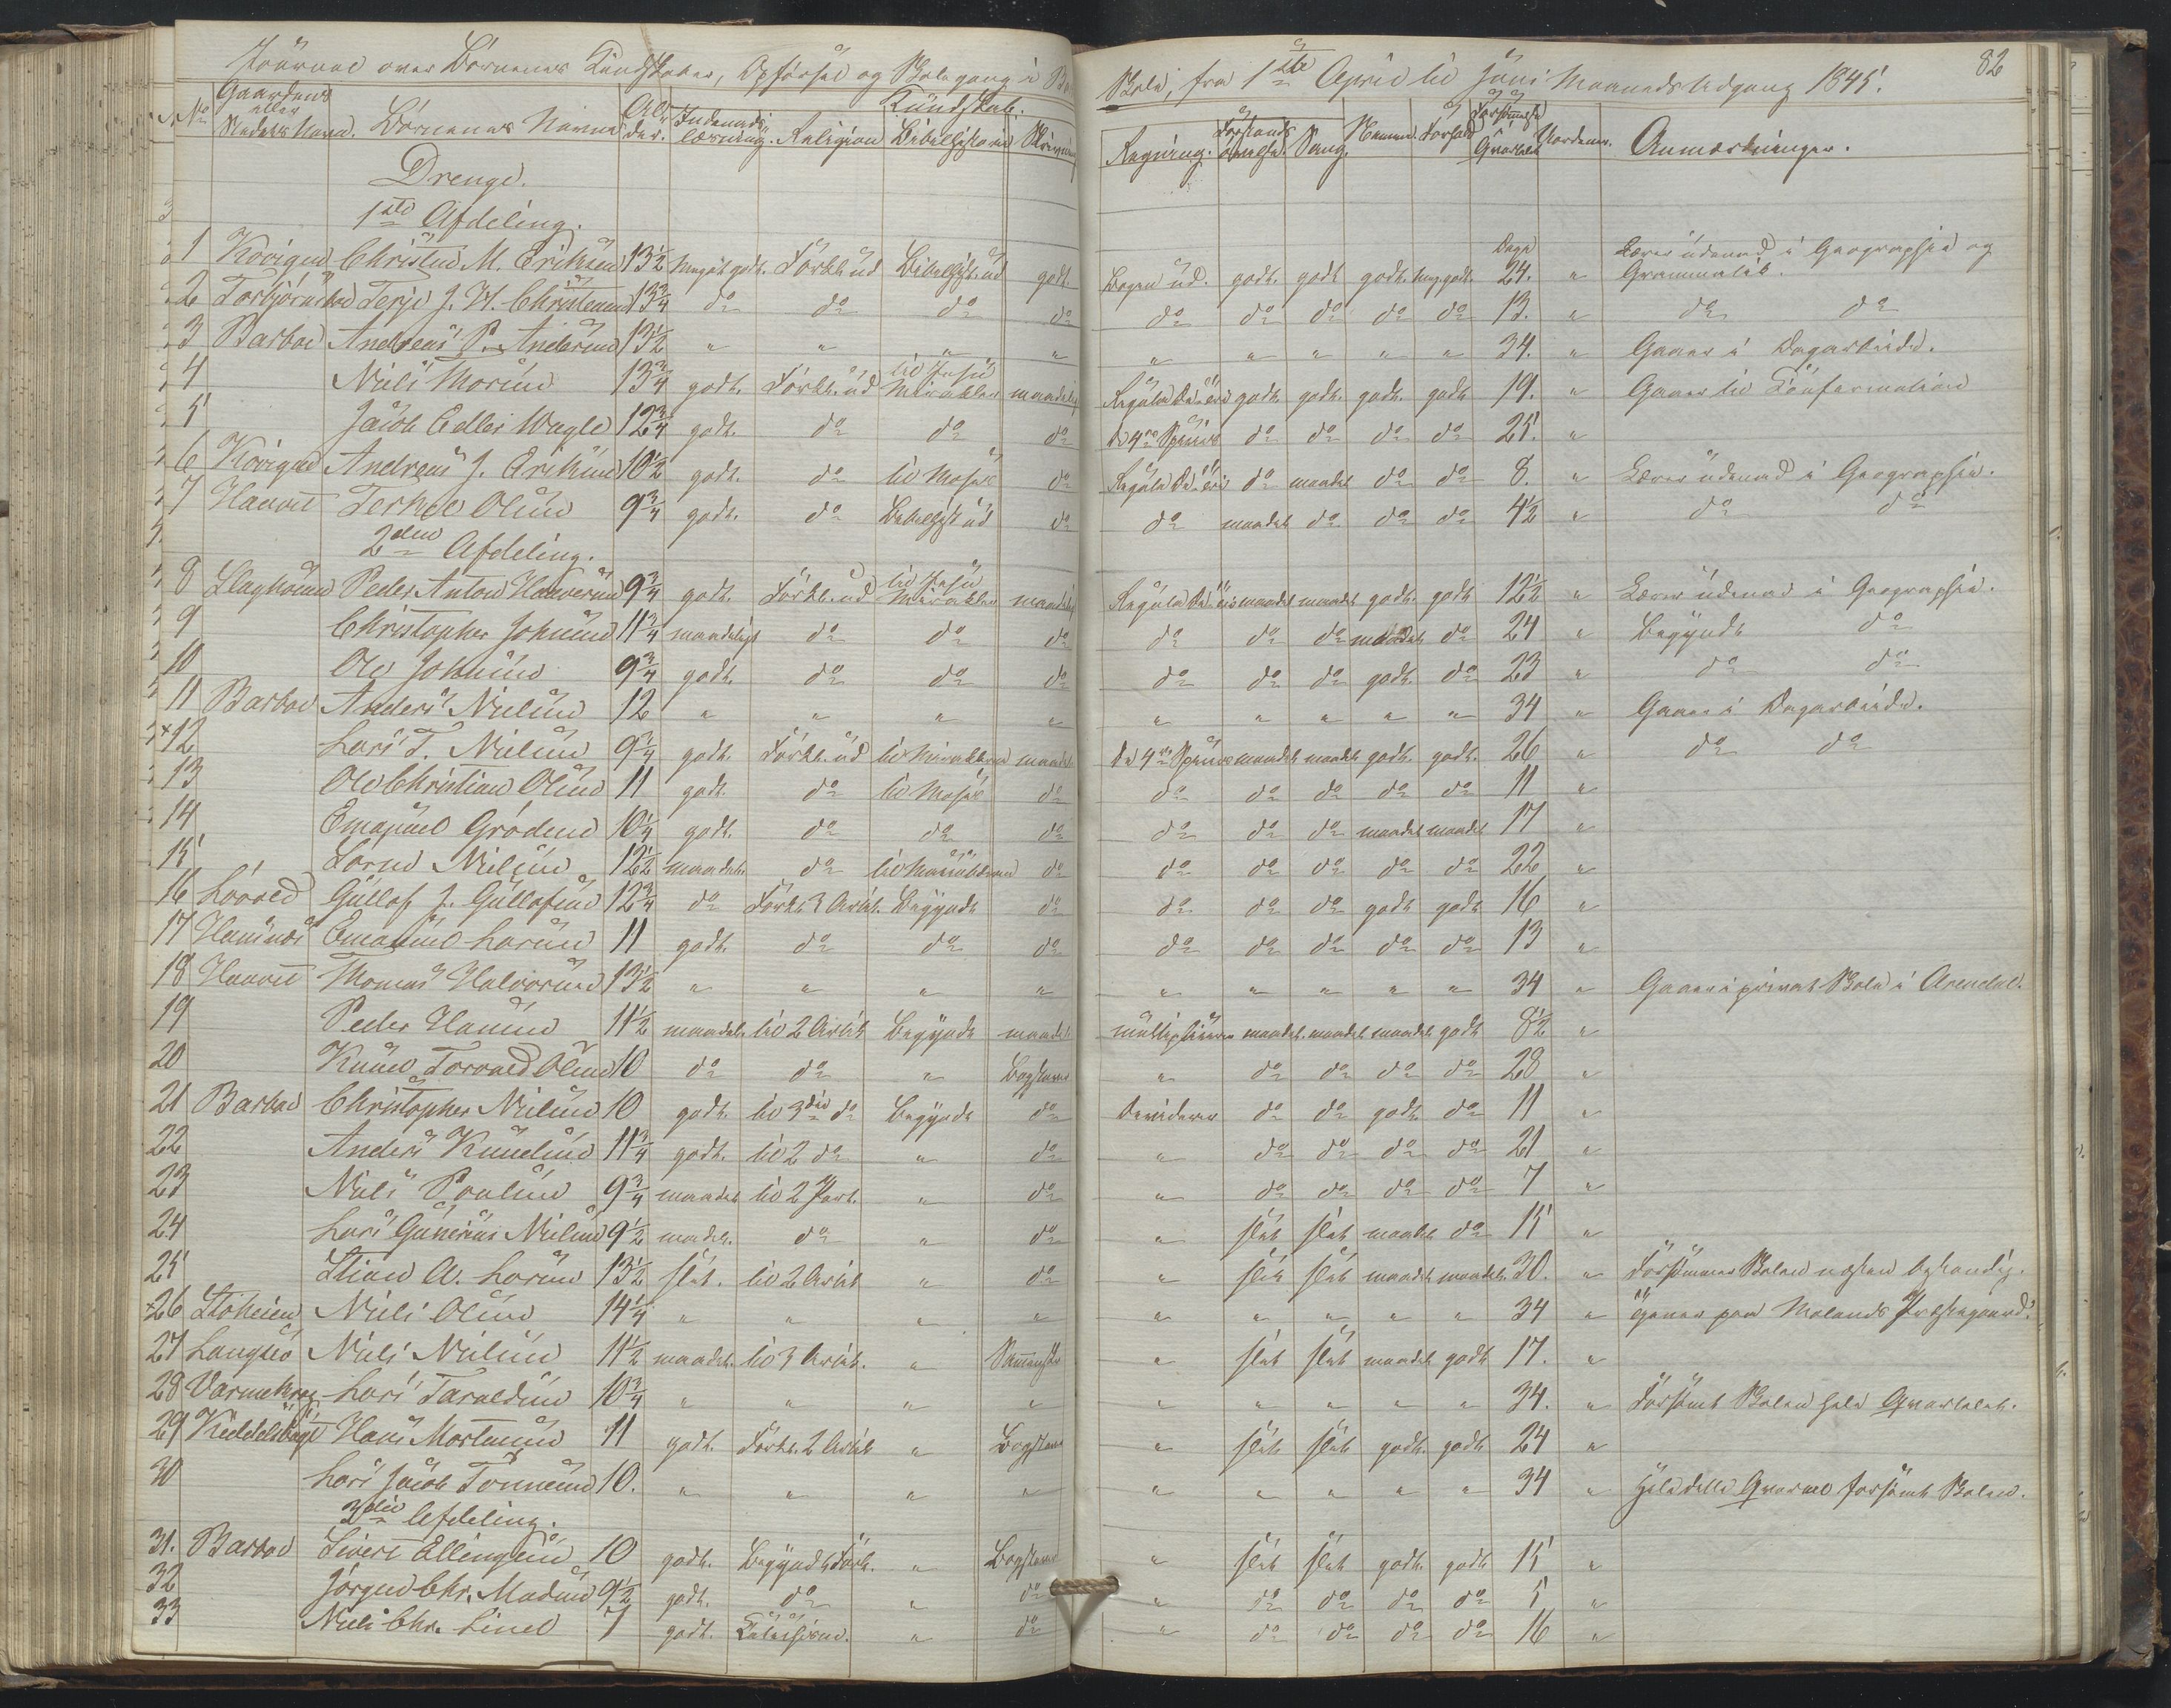 Journal over Børnenes Kundskaber, Opførsel og Skolegang i
Skole, fra 1ste April til Juni Maaneds Udgang 1845. 82
No Gaardens eller Stedets Navn. Børnenes Navne Alder. Indenadslæsning. Religion Bibelhistorie Skrivning Kundskab.
Regning. Forstandsøvelse. Sang. Nemme. Forhold Forsømmelse Qvartalet Anmærkninger.
Drenge.
1ste Afdeling.
1 Christen M. Eriksen 13½ meget godt. Forkl. ud Bibelhist. ud godt. Bogen ud. godt. godt godt. meg. godt. Dage 24. " Læser udenad i Geographie og Grammatik.
2 Terje J. W. Christensen 13¾ do do do do do do do do do 13. " do do
3 Barboe Andreas P. Andersen 13½ " " " " " " " " " 34. " Gaaer i Dagarbeide.
4 Niels Morsen 13¾ godt. Forkl. ud til Jesu Mirakler maadelig Regula De-tri godt. godt. godt. godt 19. " Gaaer til Confermation
5 Jacob Celles Wagle 12¾ godt. do do do de 4re Species do do do do 25. "
6 Andreas J. Eriksen 10½ godt. do til Moses do Regula De-tri do maadel do do 8. " Læser udenad i Geographie.
7 Terkel Olsen 9¾ godt. do Bibelhist ud do do maadel. do do do 4½ " do do
2den Afdeling.
8 Peder Anton Halvorsen 9¾ godt. Forkl. ud til Jesu Mirakler maadelig Regula De-tri maadel maadel godt. godt 12½ " Læser udenad i Geographie.
9 Christopher Johnsen 11¾ maadeligt do do do do do do maadel. do 24 " Begyndt do
10 Ole Johnsen 9¾ godt. do do do do do do godt. do 23 " do do
11 Barboe Anders Nielsen 12 " " " " " " " " " 34 " Gaaer i Dagarbeide.
×12 Lars T. Nielsen 9¾ godt. Forkl. ud til Miraklerne maadel. de 4re Species maadel. maadel. godt. godt. 26 " do do
13 Ole Christian Olsen 11 godt. do til Moses do do do do do do 11 "
14 Emanuel Grødum 10¼ godt. do do do do do do maadel maadel 17 "
15 Søren Nielsen 12½ maadel. do til Miraklerne do do do do do do 22 "
16 Gullof J. Gullofsen 12¾ do Forkl. 3 Artik. Begyndt do do do do godt godt 16 "
17 Emanuel Larsen 11 godt. do do do do do do do do 13 "
18 Thomas Halvorsen 13½ " " " " " " " " " 34 " Gaaer i privat Skole i Arendal.
19 Peder Hansen 11½ maadel. til 2 Artik Begyndt maadel. multiplicerer maadel. maadel. maadel. godt 8½ "
20 Knud Torvald Olsen 10 do do " Bogstaver " do do do do 28 "
21 Barboe Christopher Nielsen 10 godt. til 3die do Begyndt do Dividerer do do godt. do 11 "
22 Anders Knudsen 11¾ godt. til 2 do " do " do do do do 21 "
23 Niels Poulsen 9¾ maadel. til 2 Part. " do " do do do do 7 "
24 Lars Gunerius Nielsen 9½ maadel. do " do " slet slet maadel do 15 "
25 Stian A. Larsen 13½ slet. til 2 Artik " do " slet slet maadel maadel. 30. " Forsømmer Skolen næsten bestandig.
×26 Niels Olsen 14¼ " " " " " " " " " 34 " tjener paa Molands Præstegaard.
27 Niels Nielsen 11½ maadel. til 3 Artik. " " slet slet maadel godt 17. "
28 Lars Taraldsen 10¾ " " " " " " " " " 34. " Forsømt Skolen hele Qvartalet.
29 Hans Mortensen 11 godt. Forkl. 2 Artik " Bogstaver " slet slet godt. godt. 24 "
30 Lars Jacob Tønnesen 10. " " " " " " " " " 34 " hele dette Qvartal forsømt Skolen.
3die Afdeling.
31. Barboe Sivert Ellingsen 10 godt. Begyndt Forkl. " Bogstaver " slet slet godt. godt 15 "
32 Jørgen Chr. Madsen 9½ godt. do " do " do do do do 5 "
33 Niels Chr. 7 godt. " do " do do do do 16 "